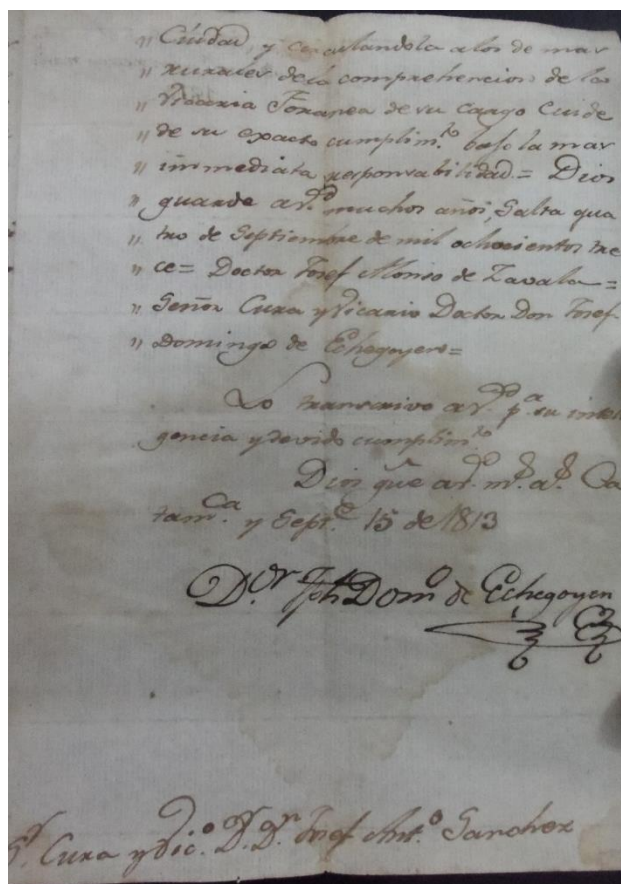 " Ciudad, y circulandola a los de mas
" rurales de la comprehencion de la
" Vicaria Foranea de su cargo Cuide
" de su exacto cumplim.to bajo la mas
" immediata responsabilidad.= Dios
" guarde a V.md muchos años, Salta qua
" tro de Septiembre de mil ochocientos tre
" ce= Doctor Josef Alonso de Zavala=
" Señor Cura y Vicario Doctor Don Josef
" Domingo de Echegoyen=
Lo transcrivo a V.md p.a su inteli
gencia y devido cumplim.to
Dios gũe a V.md m.s a.s Ca
tam.ca y Sept.e 15 de 1813
D.or Jph Dom.o de Echegoyen
S.r Cura y Vic.o D.r D.n Josef Ant.o Sanchez